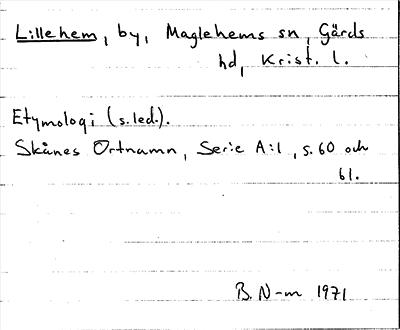 Lillehem, by, Maglehems sn, Gärds
hd, Krist. l.
Etymologi (s.led.).
Skånes Ortnamn, Serie A:1, s. 60 och
61.
B. N-m 1971